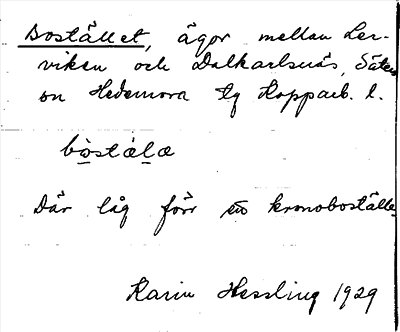 Bostället, ägor mellan Ler-
viken och Dalkarlsnäs, Säters
sn Hedemora tg Kopparb. l.
bòstälæ
Där låg förr en kronoboställe
Karin Hessling 1929